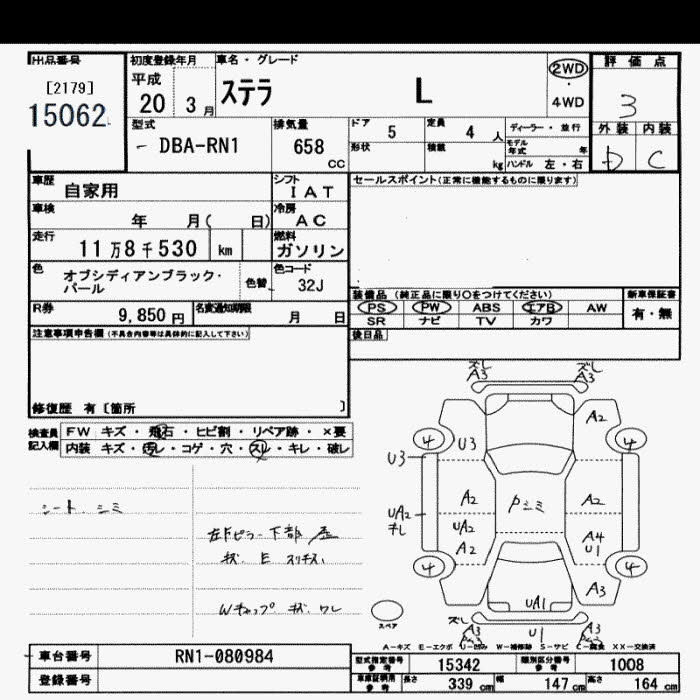 出品番号
[2179]
15062
初度登録年月
平成
20 3月
車名・グレード
ステラ L
2WD
・
4WD
評価点
3
外装 内装
D C
型式
DBA-RN1
排気量
658
CC
ドア
5
定員
4 人
形状
積載
kg
ディーラー・並行
モデル年式 年
ハンドル 左・右
車歴
自家用
シフト
IAT
車検
年 月( 日)
冷房
AC
走行
11万8千530 km
燃料
ガソリン
色
オブシディアンブラック・
パール
色替
色コード
32J
セールスポイント(正常に機能するものに限ります)
R券
9,850円
名変通知期限
月 日
装備品 (純正品に限り○をつけてください)
PS PW ABS エアB AW
SR ナビ TV カワ
新車保証書
有・無
後日品
注意事項申告欄(不具合内容等は具体的に記入して下さい)
修復歴 有〔箇所 〕
検査員
記入欄
FW キズ・飛石・ヒビ割・リペア跡・×要
内装 キズ・汚レ・コゲ・穴・スレ・キレ・破レ
シート シミ
左Fピラー下部
Wキャップ キズ ワレ
ズレ
A3
ズレ
A3
A2
4
4
U3
U3
A2
A2
Pシミ
UA2
UA2
A2
A4
U1
4
4
A3
UA1
ズレ
A3
U1
A3
スペア
A－キズ E－エクボ U－凹み W－補修跡 S－サビ C－腐食 XX－交換済
車台番号
RN1-080984
登録番号
型式指定番号
参考
15342
類別区分番号
参考
1008
車庫証明用
参考
長さ
339 cm
幅
147 cm
高さ
164 cm